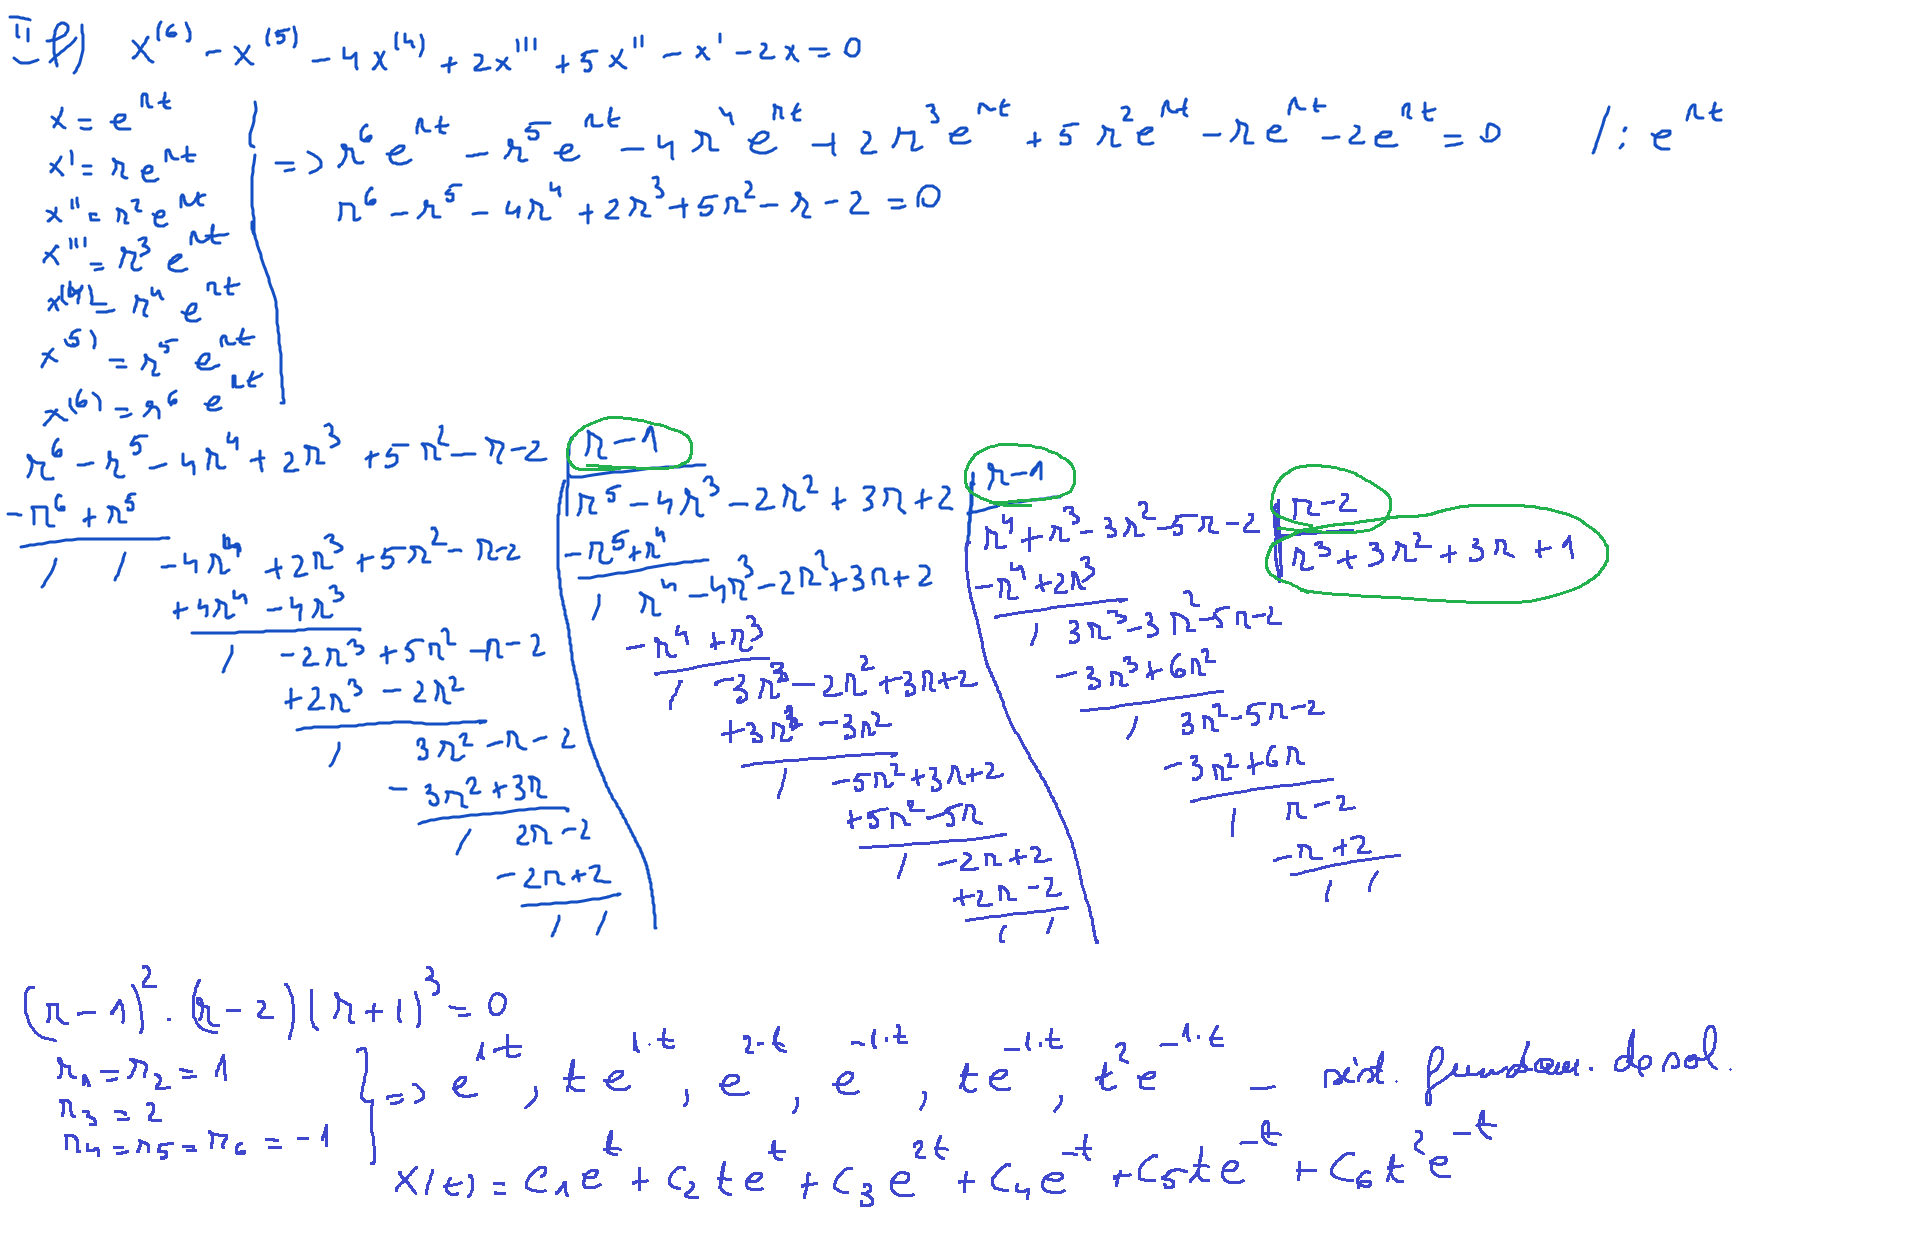 II f) x^(6) - x^(5) - 4x^(4) + 2x''' + 5x'' - x' - 2x = 0
x = e^rt
x' = r e^rt
x'' = r^2 e^rt
x''' = r^3 e^rt
x^(4) = r^4 e^rt
x^(5) = r^5 e^rt
x^(6) = r^6 e^rt
=> r^6 e^rt - r^5 e^rt - 4r^4 e^rt + 2r^3 e^rt + 5r^2 e^rt - r e^rt - 2e^rt = 0 /: e^rt
r^6 - r^5 - 4r^4 + 2r^3 + 5r^2 - r - 2 = 0
r^6 - r^5 - 4r^4 + 2r^3 + 5r^2 - r - 2 | r - 1
-r^6 + r^5
/ / -4r^4 + 2r^3 + 5r^2 - r - 2
+4r^4 - 4r^3
/ -2r^3 + 5r^2 - r - 2
+2r^3 - 2r^2
/ 3r^2 - r - 2
-3r^2 + 3r
/ 2r - 2
-2r + 2
/ /
r^5 - 4r^3 - 2r^2 + 3r + 2 | r - 1
-r^5 + r^4
/ r^4 - 4r^3 - 2r^2 + 3r + 2
-r^4 + r^3
/ -3r^3 - 2r^2 + 3r + 2
+3r^3 - 3r^2
/ -5r^2 + 3r + 2
+5r^2 - 5r
/ -2r + 2
+2r - 2
/ /
r^4 + r^3 - 3r^2 - 5r - 2 | r - 2
-r^4 + 2r^3
/ 3r^3 - 3r^2 - 5r - 2
-3r^3 + 6r^2
/ 3r^2 - 5r - 2
-3r^2 + 6r
/ r - 2
-r + 2
/ /
r^3 + 3r^2 + 3r + 1
(r - 1)^2 · (r - 2)(r + 1)^3 = 0
r1 = r2 = 1
r3 = 2
r4 = r5 = r6 = -1
=> e^1·t, t e^1·t, e^2·t, e^-1·t, t e^-1·t, t^2 e^-1·t - sist. fundam. de sol.
x(t) = C1 e^t + C2 t e^t + C3 e^2t + C4 e^-t + C5 t e^-t + C6 t^2 e^-t